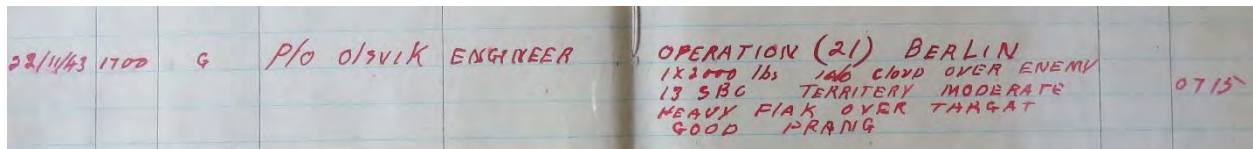 22/11/43 1700 G P/O OLSVIK ENGINEER OPERATION (21) BERLIN 0715
1X2000 lbs 10/0 CLOUD OVER ENEMY
13 SBC TERRITERY MODERATE
HEAVY FLAK OVER TARGAT
GOOD PRANG